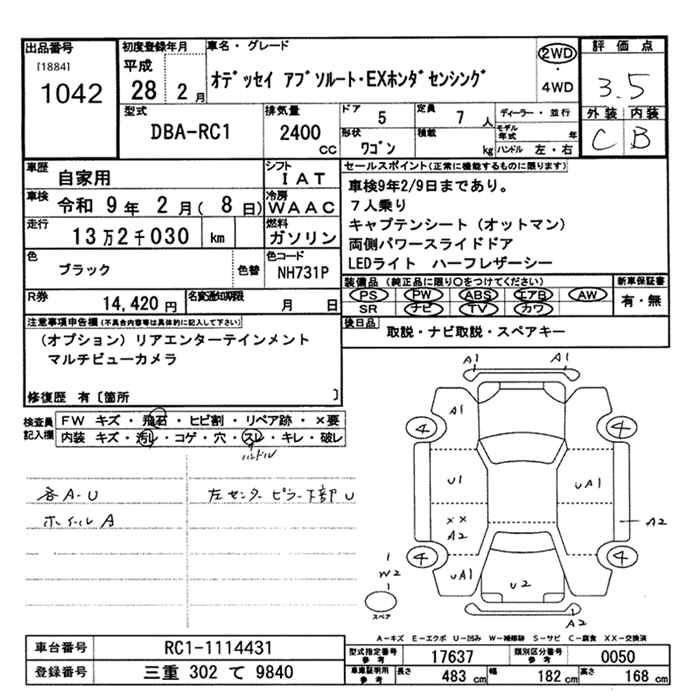 出品番号
[1884]
1042
初度登録年月
平成
28 2 月
車名・グレード
オデッセイ アブソルート・EXホンダセンシング
2WD
・
4WD
評価点
3.5
外装 内装
C B
型式
DBA-RC1
排気量
2400
CC
ドア 5
定員 7 人
形状
ワゴン
積載
kg
ディーラー・並行
モデル年式 年
ハンドル 左・右
車歴
自家用
シフト
IAT
車検
令和 9 年 2 月( 8 日)
冷房
WAAC
走行
13 万 2 千 030 km
燃料
ガソリン
色
ブラック
色替
色コード
NH731P
R券
14,420 円
名変通知期限
月 日
セールスポイント(正常に機能するものに限ります)
車検9年2/9日まであり。
7人乗り
キャプテンシート(オットマン)
両側パワースライドドア
LEDライト ハーフレザーシー
装備品(純正品に限り〇をつけてください)
PS PW ABS エアB AW
SR ナビ TV カワ
新車保証書
有・無
後日品
取説・ナビ取説・スペアキー
注意事項申告欄(不具合内容等は具体的に記入して下さい)
(オプション)リアエンターテインメント
マルチビューカメラ
修復歴 有〔箇所 〕
検査員
記入欄
FW キズ・飛石・ヒビ割・リペア跡・×要
内装 キズ・汚レ・コゲ・穴・スレ・キレ・破レ
ハンドル
各A-U
ホイールA
左センターピラー下部U
A1
A1
A1
4
4
U1
UA1
××
A2
A2
4
4
W2
UA1
U2
A1
A2
スペア
A-キズ E-エクボ U-凹み W-補修跡 S-サビ C-腐食 XX-交換済
車台番号
RC1-1114431
登録番号
三重 302 て 9840
型式指定番号
参考
17637
類別区分番号
参考
0050
車庫証明用
参考
長さ 483 cm
幅 182 cm
高さ 168 cm